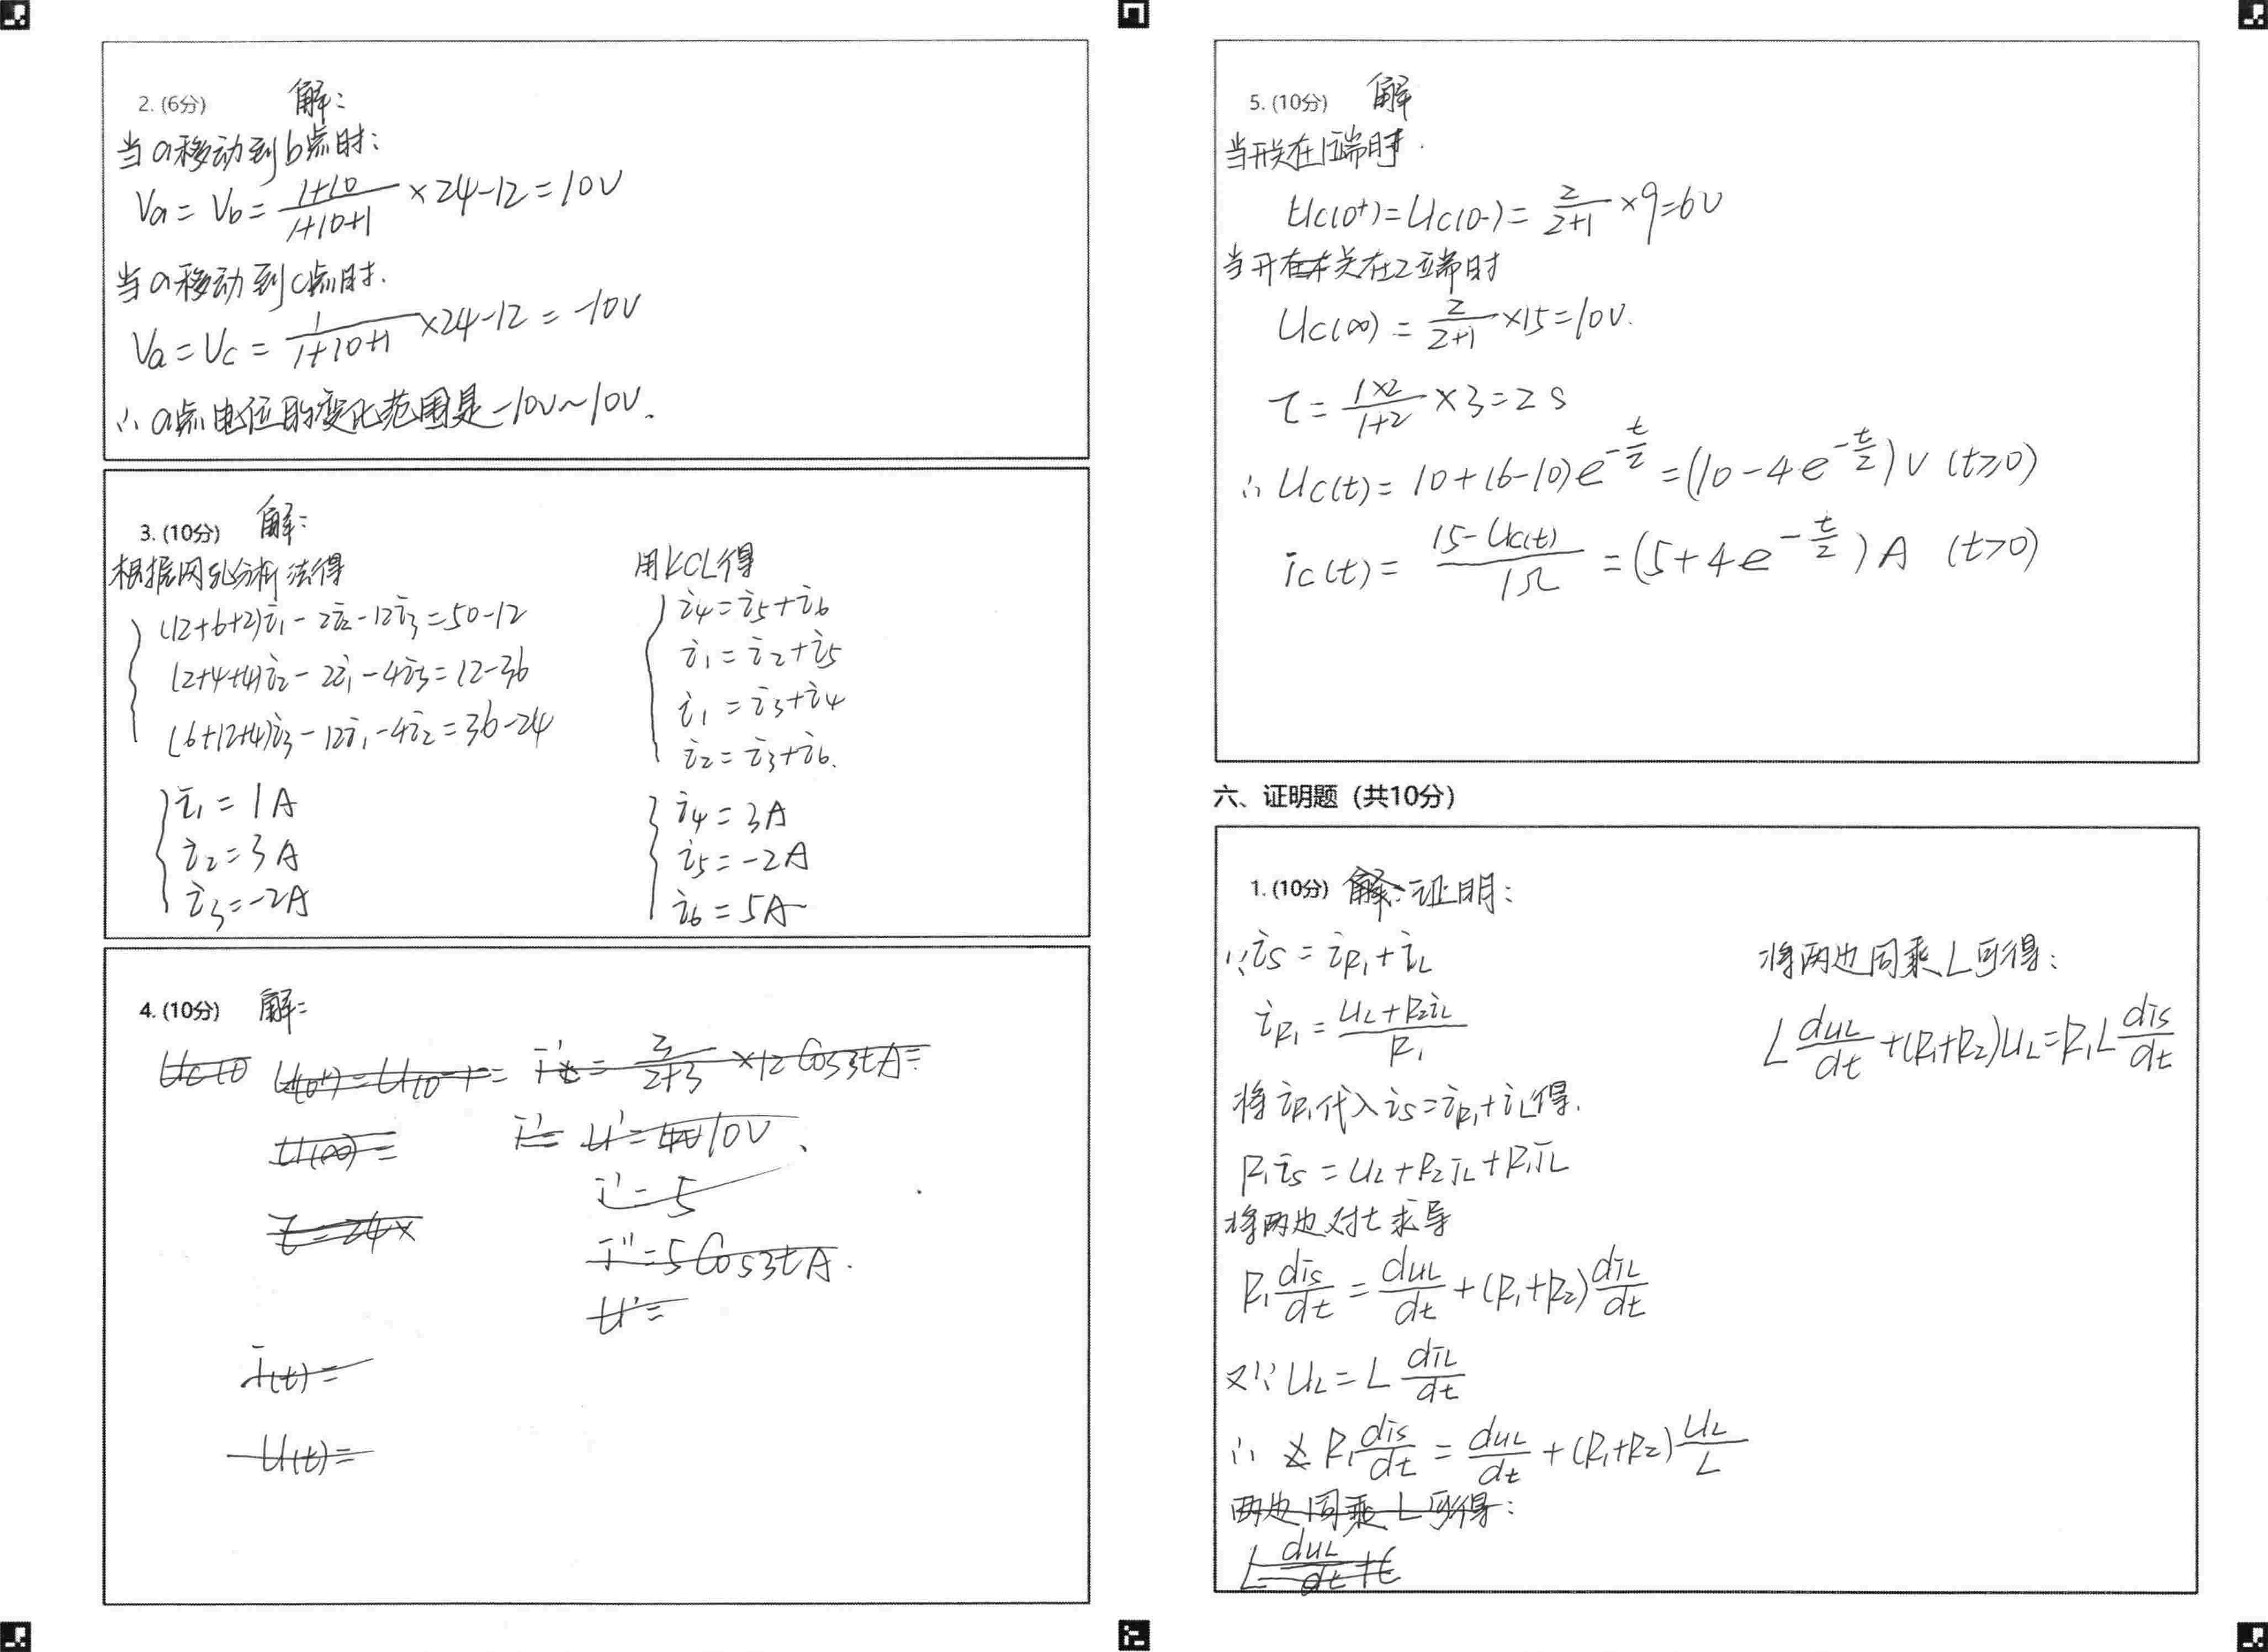 2. (6分) 解:
当a移动到b点时:
Va = Vb = (1+10)/(1+10+1) ×24-12 = 10V
当a移动到c点时.
Va = Vc = 1/(1+10+1) ×24-12 = -10V
∴ a点电位的变化范围是-10V~10V.
3. (10分) 解:
根据网孔分析法得
(12+6+2)i₁ - 2i₂ - 12i₃ = 50-12
(2+4+4)i₂ - 2i₁ - 4i₃ = 12-36
(6+12+4)i₃ - 12i₁ - 4i₂ = 36-24
i₁ = 1A
i₂ = 3A
i₃ = -2A
用KCL得
i₄ = i₅+i₆
i₁ = i₂+i₅
i₁ = i₃+i₄
i₂ = i₃+i₆.
i₄ = 3A
i₅ = -2A
i₆ = 5A
4. (10分) 解:
i' = 5
i'' = 5Cos3tA.
u' =
i(t) =
u(t) =
5. (10分) 解
当开关在1端时.
uc(0+) = uc(0-) = 2/(2+1) ×9 = 6V
当开关在2端时
uc(∞) = 2/(2+1) ×15 = 10V.
τ = (1×2)/(1+2) ×3 = 2s
∴ uc(t) = 10+(6-10)e^(-t/2) = (10-4e^(-t/2))V (t≥0)
ic(t) = (15-uc(t))/1Ω = (5+4e^(-t/2))A (t>0)
六、证明题（共10分）
1. (10分) 解: 证明:
∵ is = iR₁+iL
iR₁ = (uL+R₂iL)/R₁
将iR₁代入is=iR₁+iL得.
R₁is = uL+R₂iL+R₁iL
将两边对t求导
R₁ dis/dt = duL/dt + (R₁+R₂) diL/dt
又∵ uL = L diL/dt
∴ R₁ dis/dt = duL/dt + (R₁+R₂) uL/L
两边同乘L可得:
L duL/dt +(
将两边同乘L可得:
L duL/dt + (R₁+R₂)uL = R₁L dis/dt